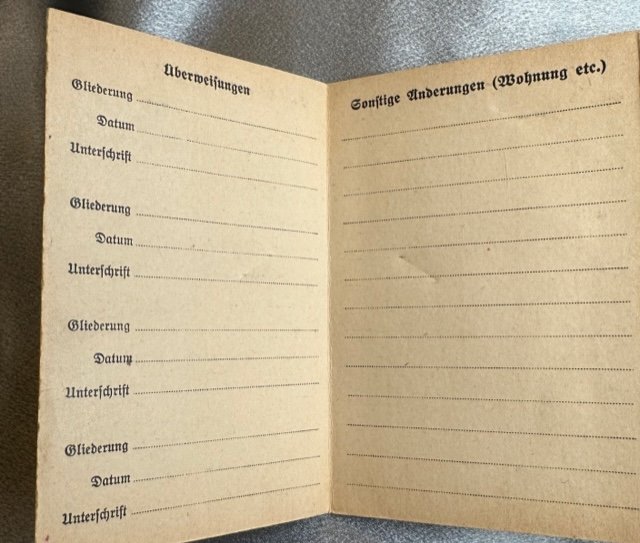 Überweisungen
Gliederung
Datum
Unterschrift
Gliederung
Datum
Unterschrift
Gliederung
Datum
Unterschrift
Gliederung
Datum
Unterschrift
Sonstige Änderungen (Wohnung etc.)